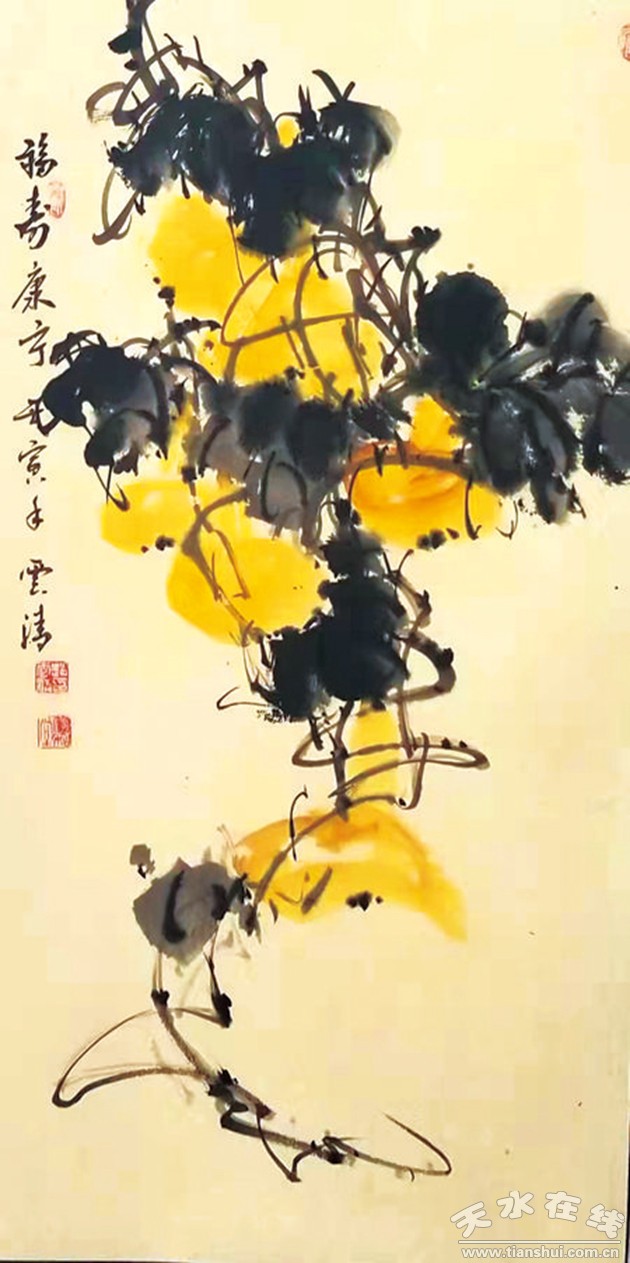 福寿康宁 壬寅年 云涛
天水在线
www.tianshui.com.cn